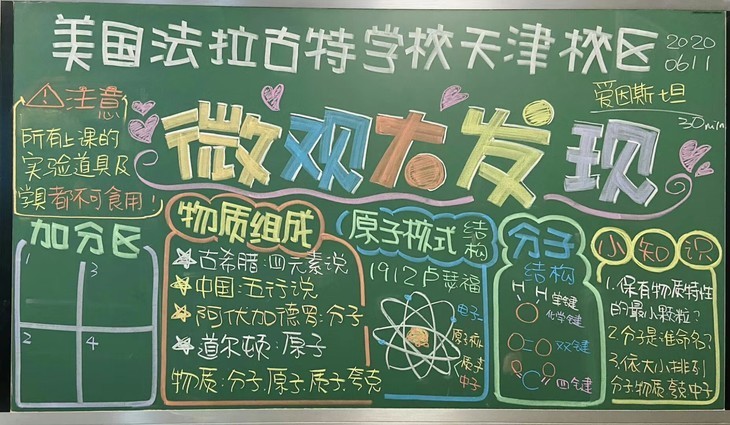 美国法拉古特学校天津校区
2020
0611
爱因斯坦
30min
⚠注意
所有上课的
实验道具及
学具都不可食用!
微观大发现
加分区
1
3
2
4
物质组成
古希腊:四元素说
中国:五行说
阿伏加德罗:分子
道尔顿:原子
物质:分子.原子.质子.夸克
原子核式
结构
1912卢瑟福
电子
原子核
质子
中子
分子
结构
H H 单键
化学键
双键
四键
小知识
1.保有物质特性
的最小颗粒?
2.分子是谁命名?
3.依大小排列
分子物质夸克中子